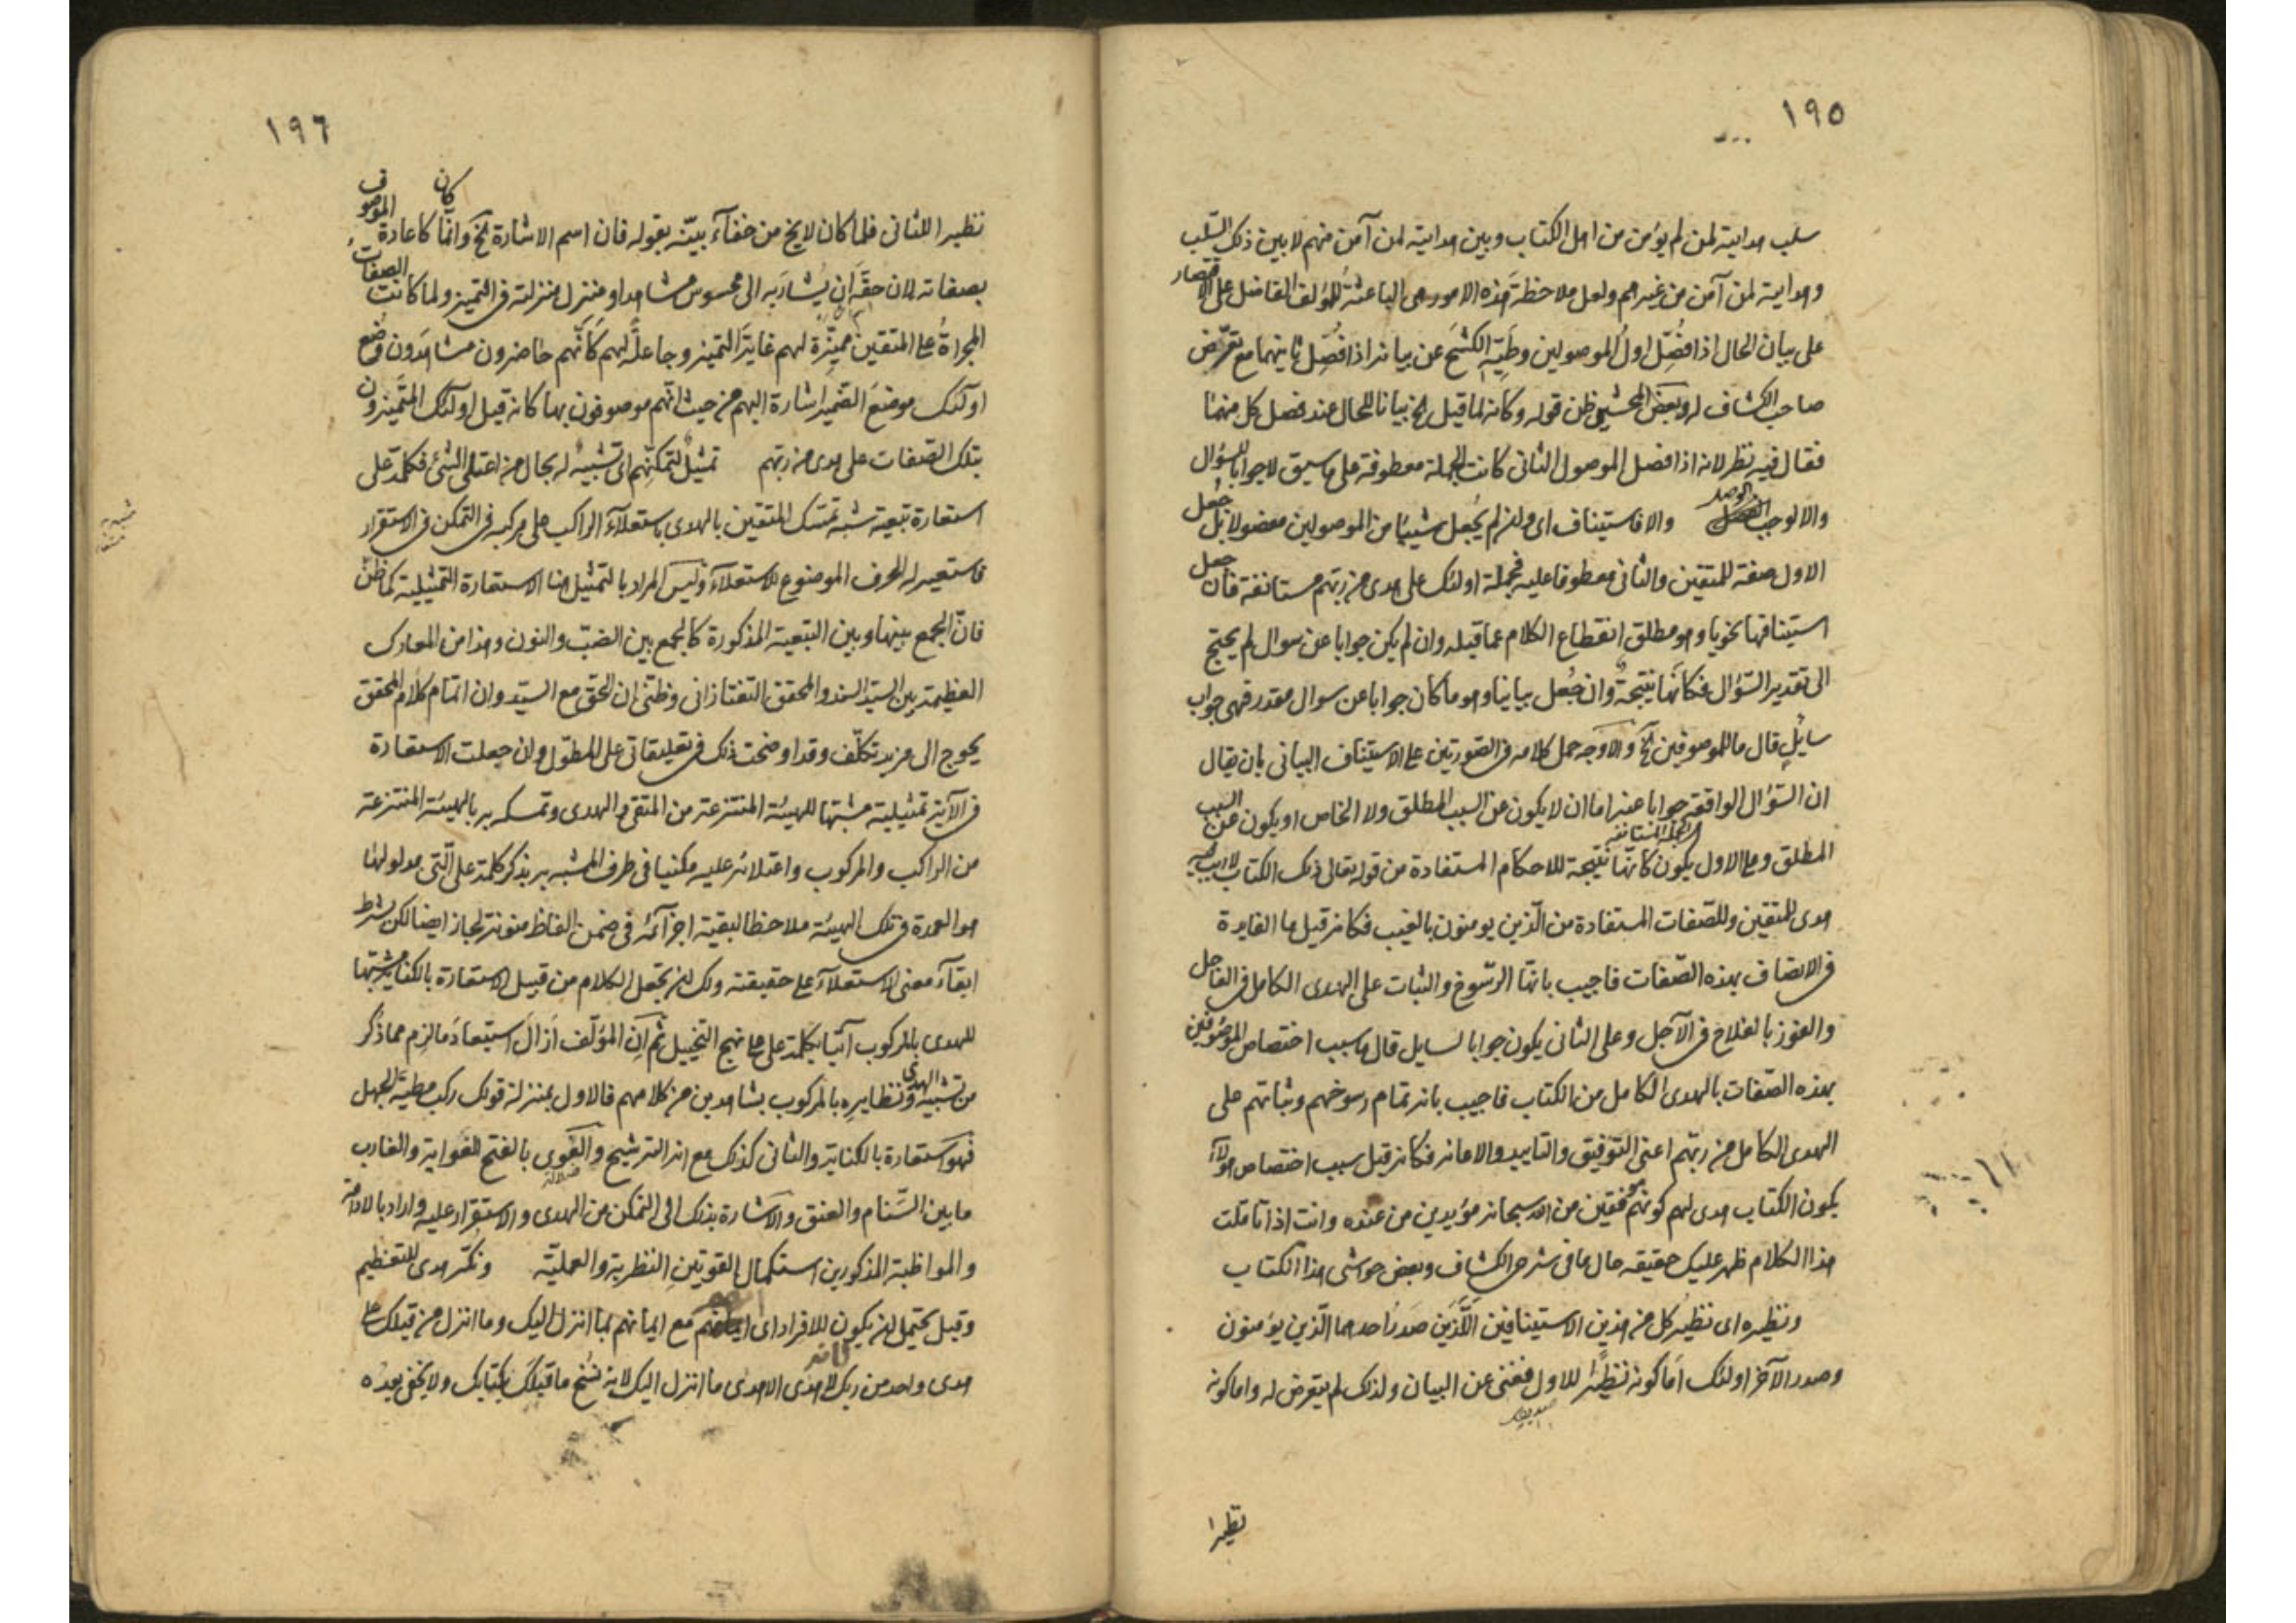 ١٩٥
سلب هدايته لمن لم يؤمن من اهل الكتاب وبين هدايته لمن آمن منهم لا بين ذلك السّلب
وهدايته لمن آمن من غيرهم ولعل ملاحظة هذه الامور هى الباعثة للمؤلف الفاضل على الاقتصار
على بيان الحال اذا فُصِّل اول الموصولين وطَيِّه الكشحَ عن بيانه اذا فُصِّل ثانيهما مع تعرّض
صاحب الكشاف له وبعض المحشين ظن قوله وكانه لما قيل الخ بيانا للحال عند فصل كل منهما
فقال فيه نظر لانه اذا فصل الموصول الثانى كانت الجملة معطوفة على ما سبق لا جوابا لسؤال
والا لوجب الوصل والا فاستيناف اى وان لم يُجعل شيئا من الموصولين مفصولا بل جُعل
الاول صفة للمتقين والثانى معطوفا عليه فجملة اولئك على هدى من ربهم مستانفة فان جعل
استينافها نحويا وهو مطلق انقطاع الكلام عما قبله وان لم يكن جوابا عن سوال لم يحتج
الى تقدير السّؤال فكانّها نتيجة وان جُعل بيانيا وهو ما كان جوابا عن سوال مقدر فهى جواب
سايل قال ما للموصوفين الخ والاوجه حمل كلامه فى الصّورتين على الاستيناف البيانى بان يقال
ان السّؤال الواقعة جوابا عنه اما ان لا يكون عن السبب المطلق ولا الخاص او يكون عن السبب
المطلق وعلى الاول يكون كانّها الجملة المستانفة نتيجة للاحكام المستفادة من قوله تعالى ذلك الكتاب لا ريب فيه
هدى للمتقين وللصّفات المستفادة من الّذين يومنون بالغيب فكانه قيل ما الفايدة
فى الاتصاف بهذه الصّفات فاجيب بانها الرّسوخ والثبات على الهدى الكامل فى العاجل
والفوز بالفلاح فى الآجل وعلى الثانى يكون جوابا لسايل قال ما سبب اختصاص الموصوفين
بهذه الصّفات بالهدى الكامل من الكتاب فاجيب بانه تمام رسوخهم وثباتهم على
الهدى الكامل من ربّهم اعنى التوفيق والتاييد والاعانه فكانه قيل سبب اختصاص هؤلاء
بكون الكتاب هدى لهم كونهم موفقين من الله سبحانه مؤيدين من عنده وانت اذا تاملت
هذا الكلام ظهر عليك حقيقه حال ما فى شرح الكشاف وبعض حواشى هذا الكتاب
ونظيره اى نظير كل من هذين الاستينافين اللّذين صدر احدهما الّذين يؤمنون
وصدر الآخر اولئك اما كونه نظيرًا للاول فغنى عن البيان ولذلك لم يتعرض له واما كونه
نظيرا
١٩٦
نظيرا للثانى فلما كان لا يخ من خفآء بيّنه بقوله فان اسم الاشارة الخ وانّما كان كاعادة الموصوف
بصفاته لان حقّه ان يُشار به الى محسوس مشاهد او منزل منزلته فى التميز ولما كانت الصفات
المجراة على المتقين مميّزة لهم غاية التميز وجاعلة لهم كأنّهم حاضرون مشاهدون وضع
اولئك موضع الضمير اشارة اليهم من حيث انّهم موصوفون بها كانه قيل اولئك المتميزون
بتلك الصّفات على هدى من ربهم تمثيل لتمكنهم اى تشبيه له بحال من اعتلى الشئ فكلمة على
استعارة تبعية شبه تمسّك المتقين بالهدى باستعلآء الراكب على مركبه فى التمكن فى الاستقرار
فاستعير له الحرف الموضوع للاستعلآء وليس المراد بالتمثيل هنا الاستعارة التمثيلية كما ظنّ
فانّ الجمع بينها وبين التبعية المذكورة كالجمع بين الضبّ والنون وهذا من المعارك
العظيمة بين السيّد السند والمحقق التفتازانى وظنى ان الحق مع السيّد وان اتمام كلام المحقق
يحوج الى مزيد تكلّف وقد اوضحت ذلك فى تعليقاتى على المطوّل وان جعلت الاستعارة
فى الآية تمثيلية مشبها للهيئة المنتزعة من المتقى والهدى وتمسكه به بالهيئة المنتزعة
من الراكب والمركوب واعتلائه عليه مكتفيا فى طرف المشبه به بذكر كلمة على الّتى مدلولها
هو العمدة فى تلك الهيئة ملاحظا لبقية اجزآئه فى ضمن الفاظ منوية لجاز ايضا لكن بشرط
ابقآء معنى الاستعلآء على حقيقته ولك ان تجعل الكلام من قبيل الاستعارة بالكناية مشبّها
للهدى بالمركوب آتيا بكلمة على على نهج التخييل ثم ان المؤلف ازال استبعاد ما لزم مما ذكر
من تشبيه الهدى ونظايره بالمركوب بشاهدين من كلامهم فالاول بمنزلة قولك ركب مطيّة الجهل
فهو استعارة بالكناية والثانى كذلك مع انه الترشيح والغوى بالفتح الغواية والغارب
ما بين السّنام والعنق والاشارة بذلك الى التمكن من الهدى والاستقرار عليه واراد بالادامة
والمواظبة المذكورين استكمال القوتين النظرية والعمليّة ونكّر هدى للتعظيم
وقيل يحتمل ان يكون للافراد اى انهم مع ايمانهم بما انزل اليك وما انزل من قبلك على
هدى واحد من ربك لا هدى الا هدى ما انزل اليك لانه نسخ ما قبلك بكتابك ولا يخفى بعده